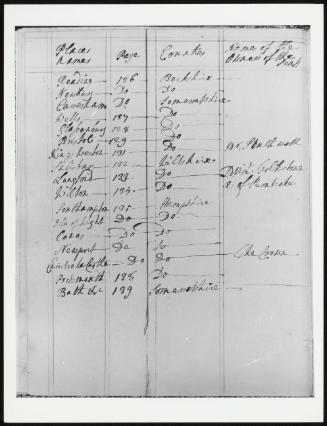 Places Names Page Counties Names of the Owners of the Seats
Reading 126 Berkshire
Newbury Do Do
Caversham Do Somersetshire
Wells 127 Do
Glastonbury 128 Do
Bristol 129 Do
Kingsweston 131 Do Mr. Southwell
132 Wiltshire
Longford 133 Do
Wilton 134 Do E. of Pembroke
Southampton 135 Hampshire
Isle of Wight Do Do
Cows Do Do
Newport Do Do
Carisbrook Castle Do Do The Crown
Portsmouth 138 Do
Bath &c 139 Somersetshire